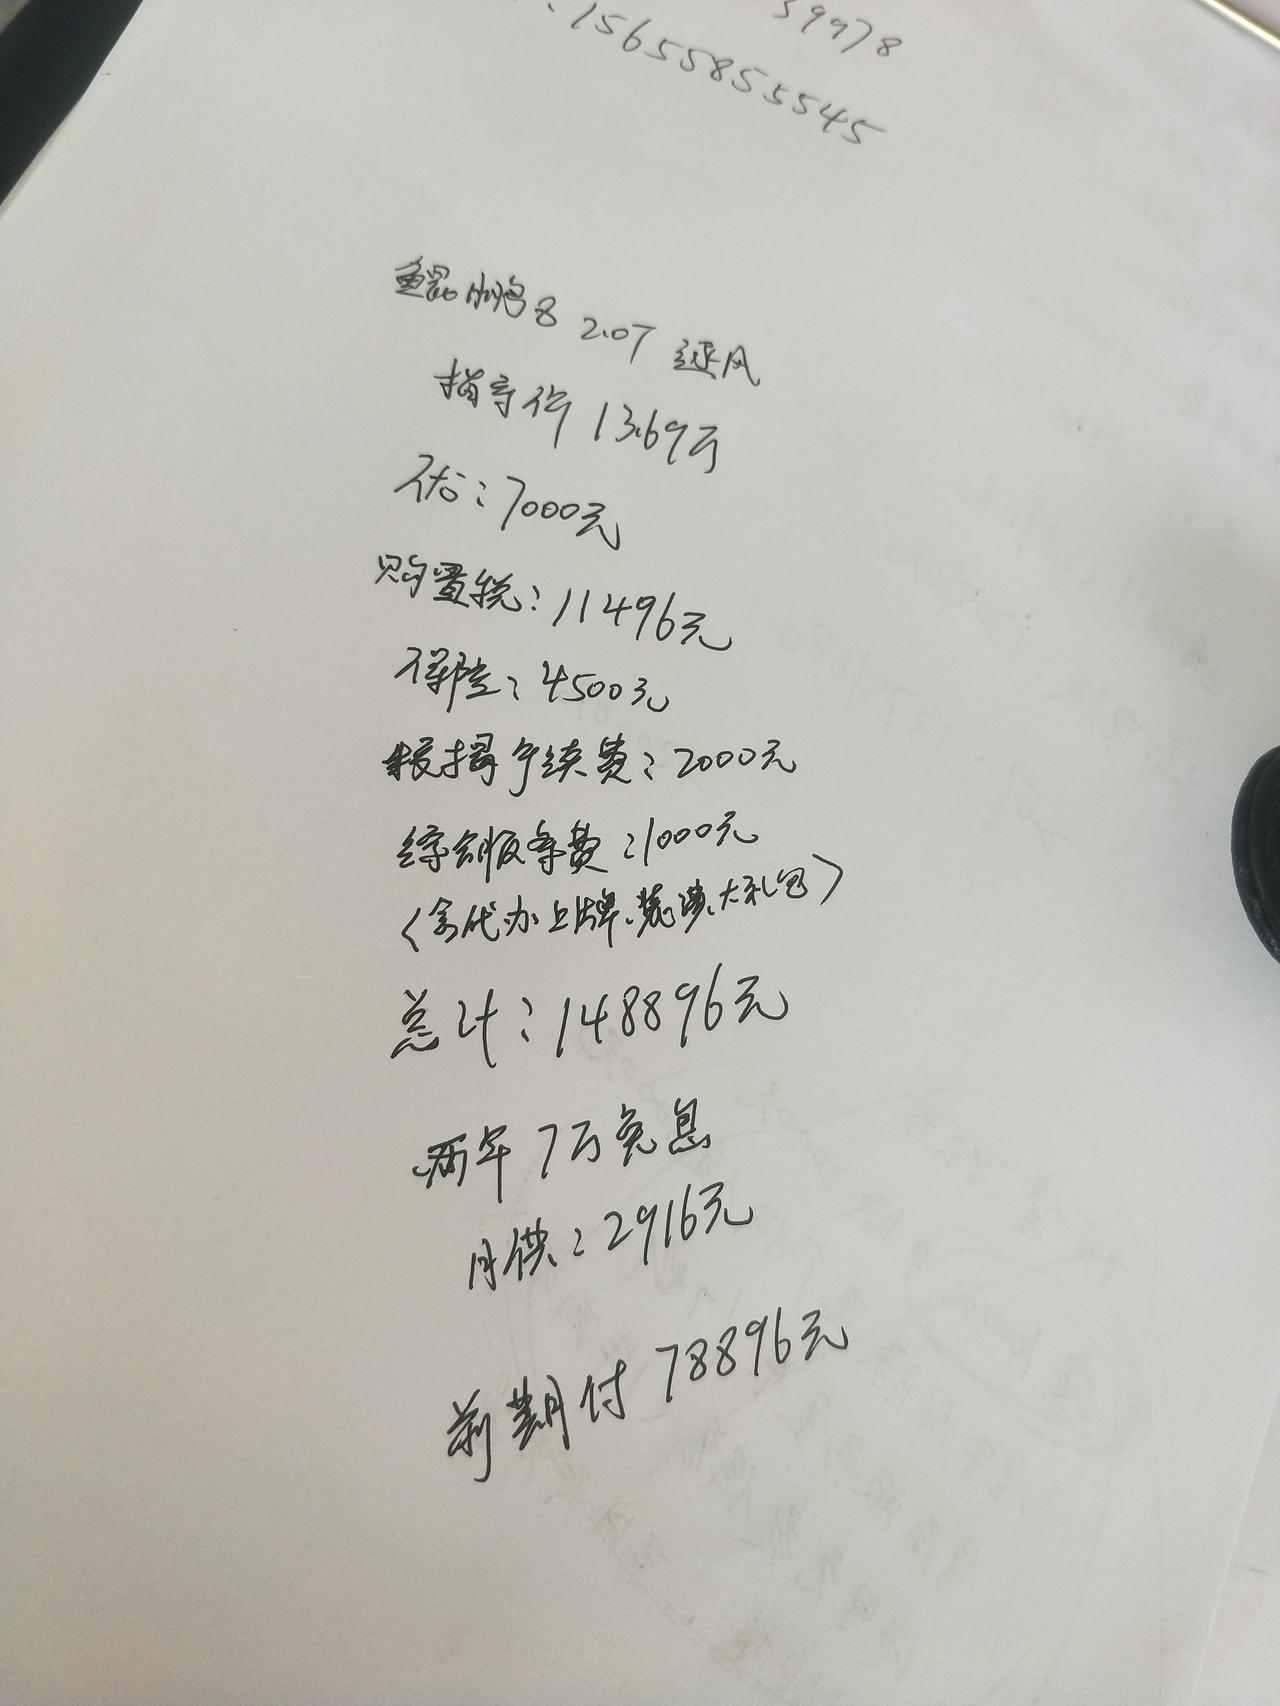 39978
15655855545
鲲鹏8 2.0T 逐风
指导价 13.69万
优：7000元
购置税：11496元
保险：4500元
按揭手续费：2000元
综合服务费：1000元
（含代办上牌、装潢、大礼包）
总计：148896元
两年7万免息
月供：2916元
前期付 78896元